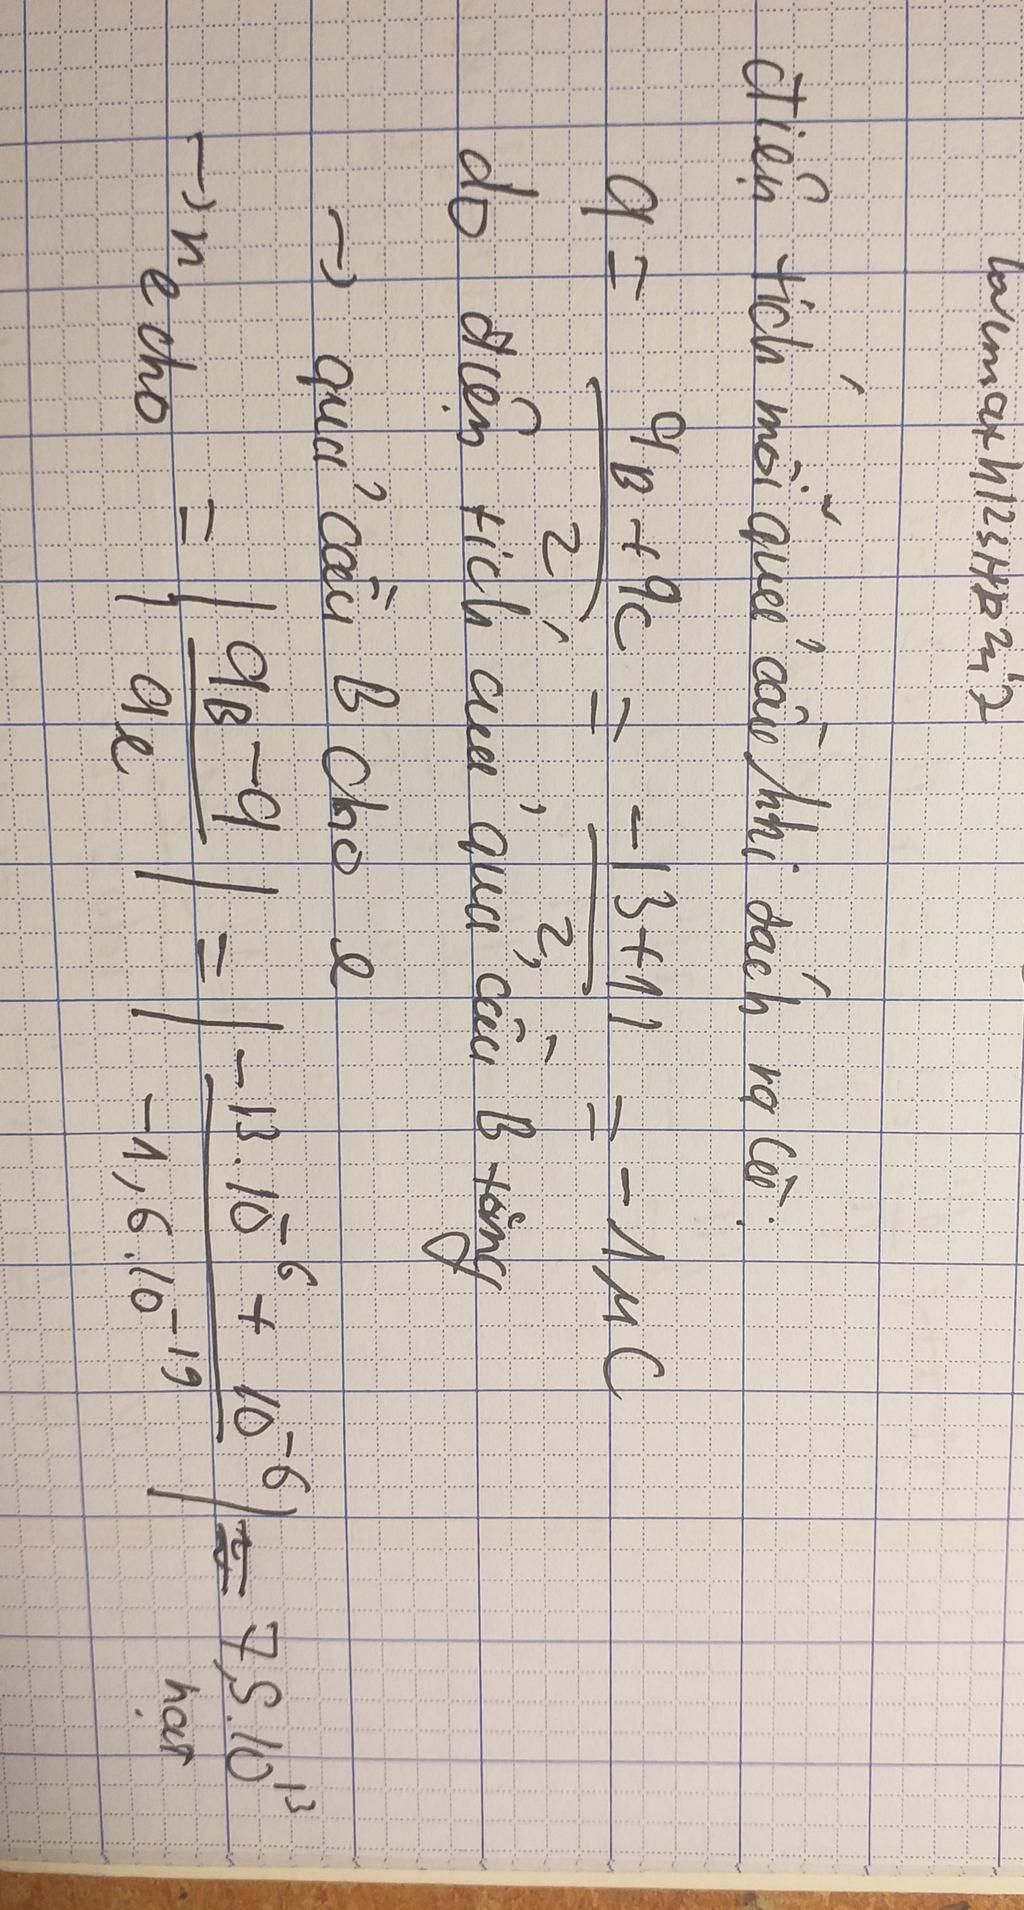 lavumaxh123HD2n'2
điện tích mỗi quả cầu khi tách ra là:
q = (qB + qC)/2 = (-13 + 11)/2 = -1 μC
do điện tích của quả cầu B tăng
→ quả cầu B cho e
→ ne cho = |(qB - q)/qe| = |(-13.10^-6 + 10^-6)/(-1,6.10^-19)| = 7,5.10^13
hạt